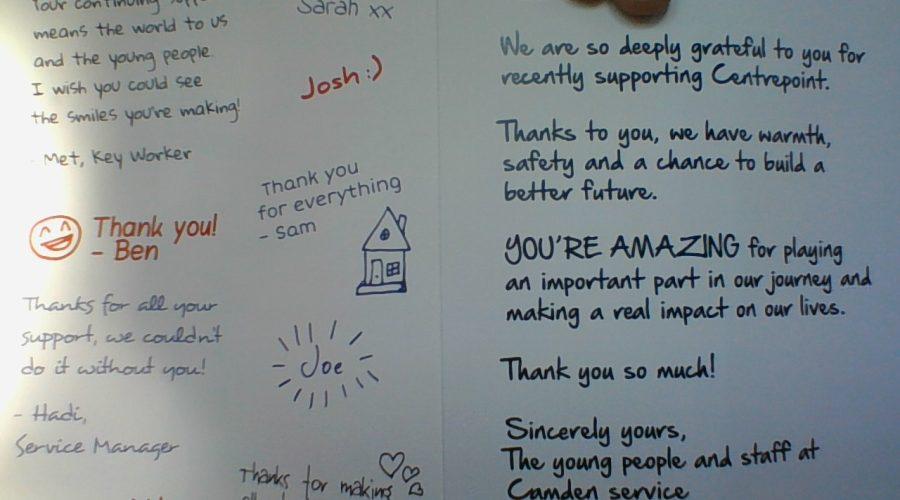 Your continuing
means the world to us
and the young people.
I wish you could see
the smiles you're making!
- Met, Key Worker
Thank you!
- Ben
Thanks for all your
support, we couldn't
do it without you!
- Hadi,
Service Manager
Sarah xx
Josh :)
Thank you
for everything
- Sam
Joe
Thanks for making
We are so deeply grateful to you for
recently supporting Centrepoint.
Thanks to you, we have warmth,
safety and a chance to build a
better future.
YOU'RE AMAZING for playing
an important part in our journey and
making a real impact on our lives.
Thank you so much!
Sincerely yours,
The young people and staff at
Camden service